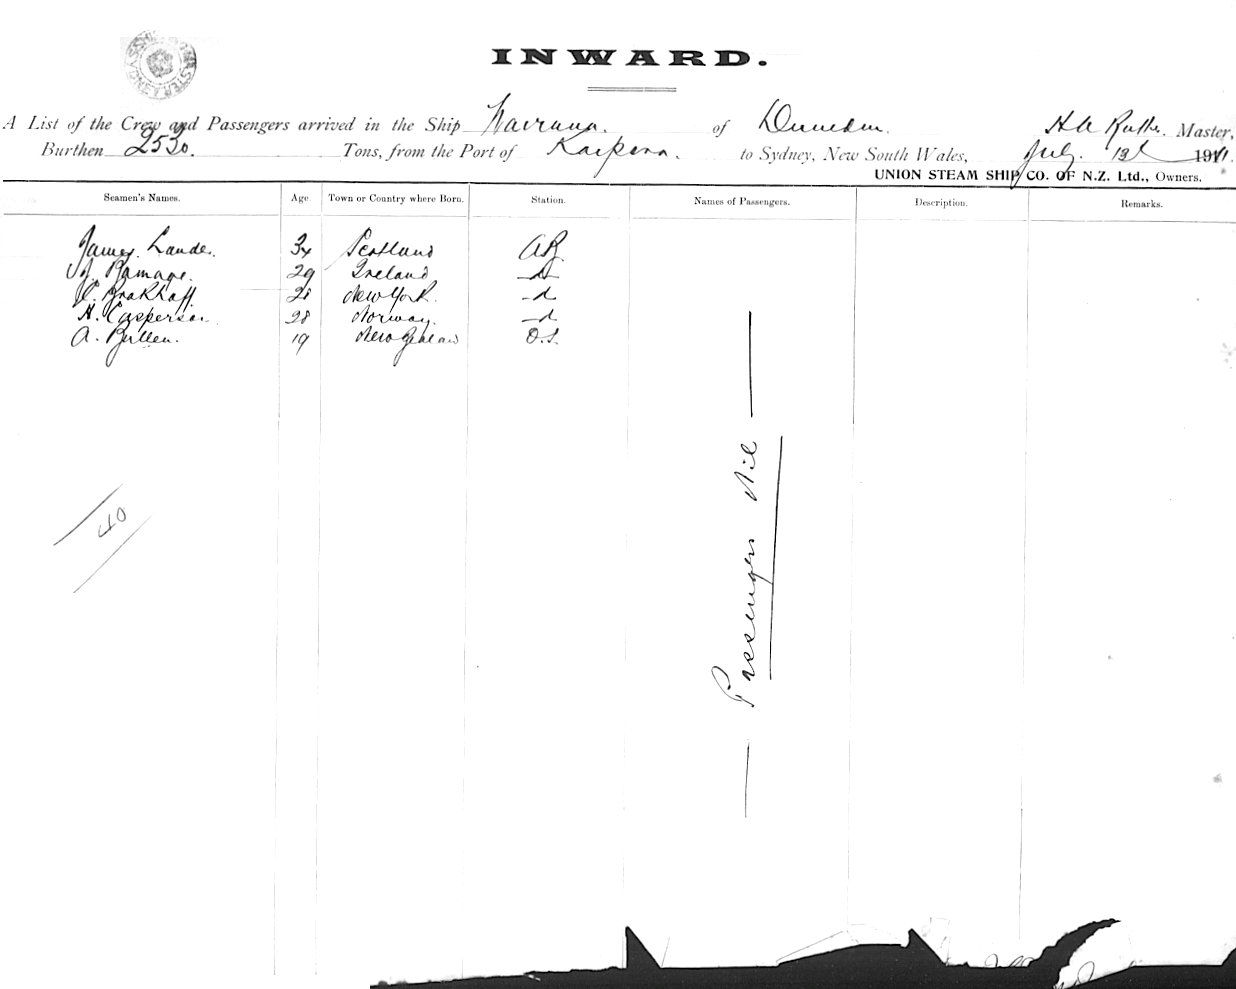 INWARD.
A List of the Crew and Passengers arrived in the Ship of Dunedin. Master,
Burthen 2530. Tons, from the Port of to Sydney, New South Wales, July 191
UNION STEAM SHIP CO. OF N.Z. Ltd., Owners.
Seamen's Names. Age Town or Country where Born. Station. Names of Passengers. Description. Remarks.
James 34 Scotland AB
J. Ramage. 29 Ireland d
28 New York. d
H. Casperson 28 Norway. d
A. Bullen. 19 New Zealand O.S.
Passengers Nil
40